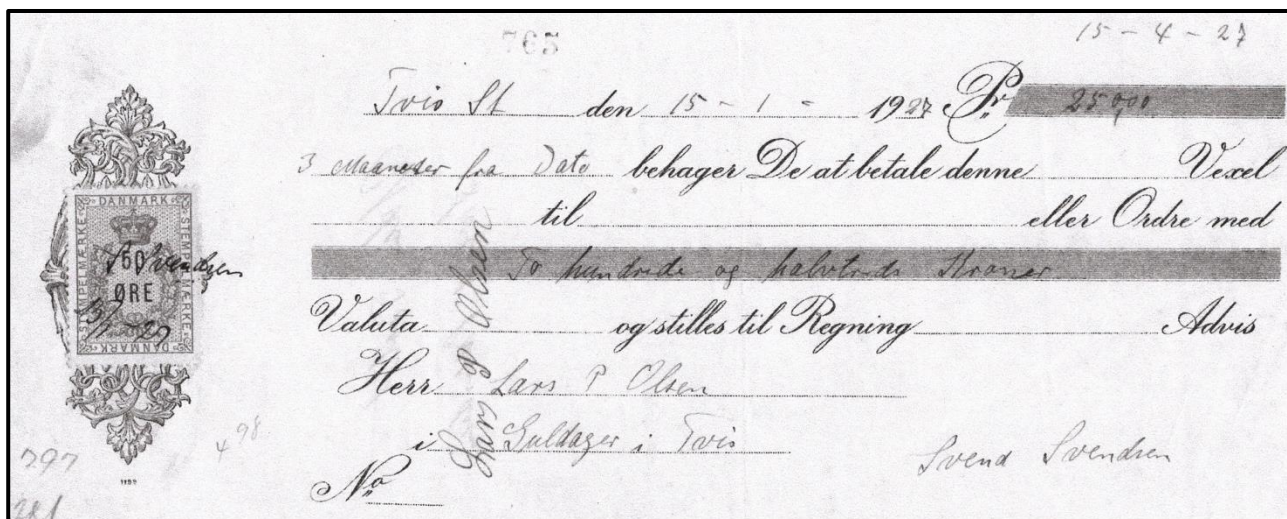 765
15 - 4 - 27
Tvis St den 15 - 1 - 1927 Pr 250,00
3 Maaneder fra Dato behager De at betale denne Vexel
til eller Ordre med
To hundrede og halvtreds Kroner
Valuta og stilles til Regning Advis
Herr Lars P Olsen
i Guldager i Tvis
Svend Svendsen
No
Lars P Olsen
DANMARK
STEMPELMÆRKE
50
ØRE
STEMPELMÆRKE
DANMARK
S Svendsen
498
797
281